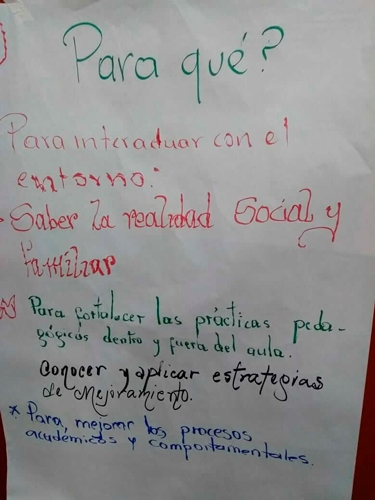 Para qué?
Para interaduar con el
entorno.
- Saber la realidad Social y
familiar
Para fortalecer las prácticas peda-
gógicas dentro y fuera del aula.
Conocer y aplicar estrategias
de Mejoramiento.
* Para, mejorar los procesos
académicos y comportamentales.